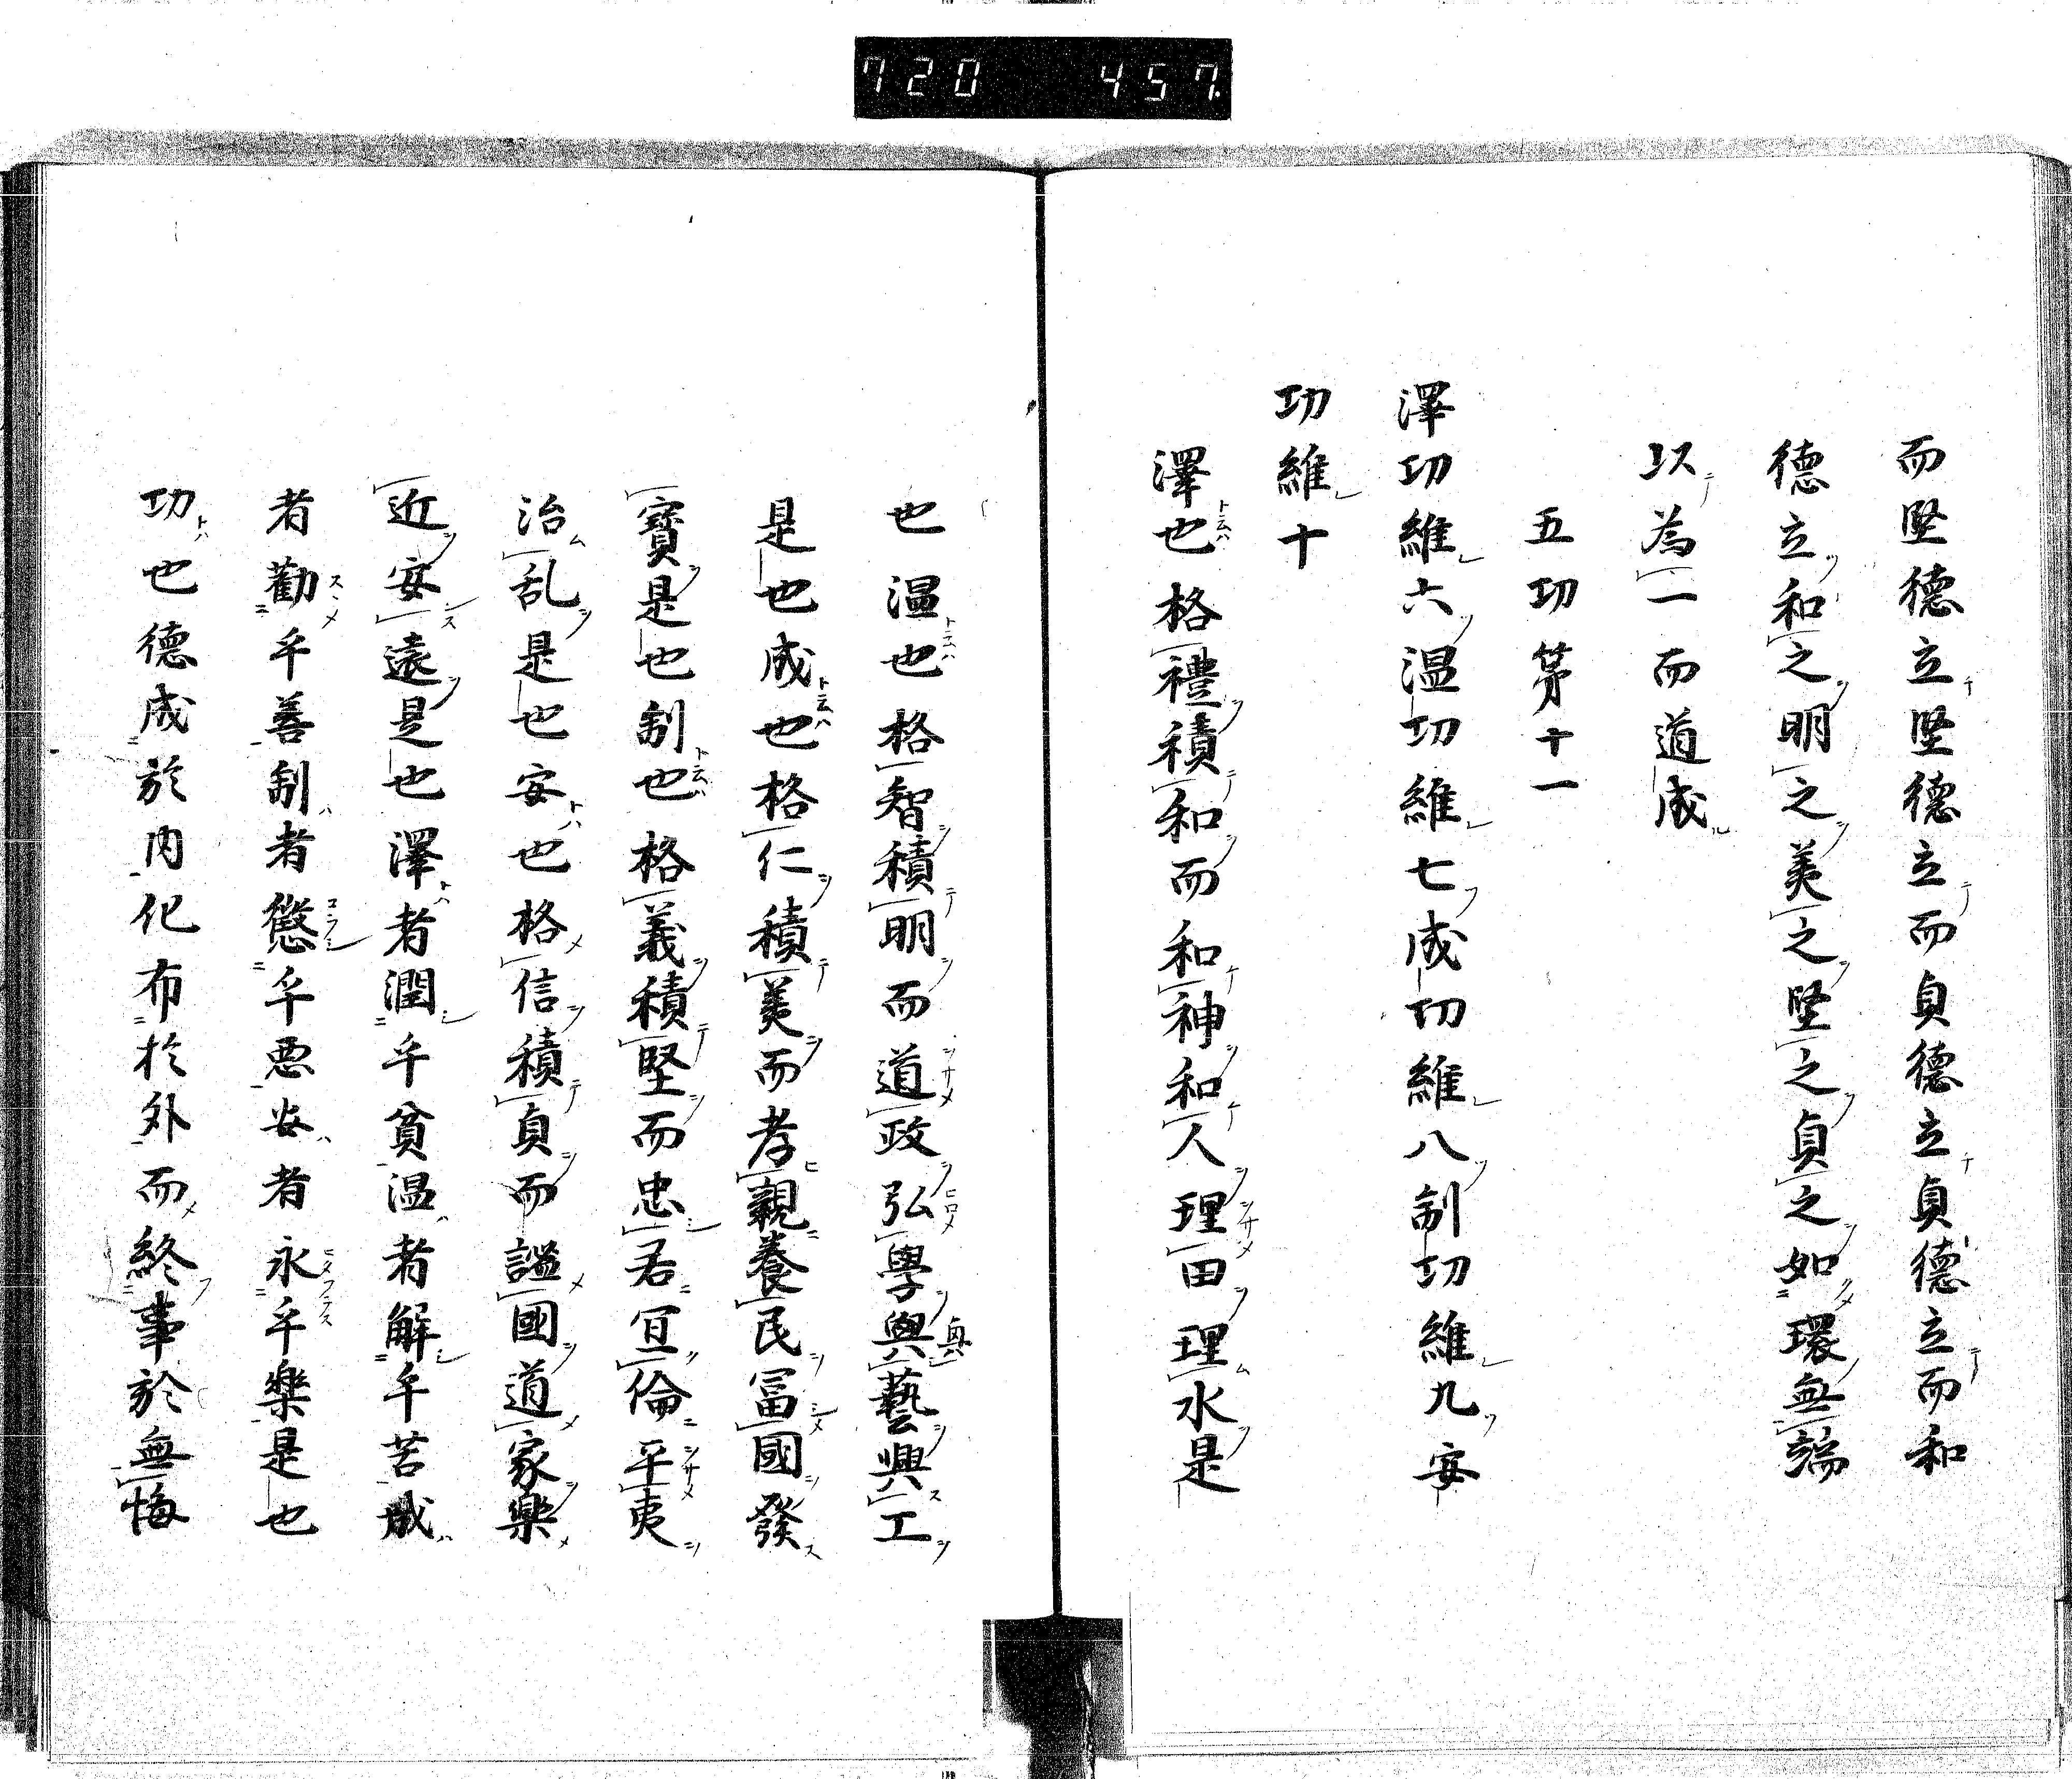 720 457
而堅德立堅德立而貞德立貞德立而和
德立和之明之美之堅之貞之如環無端
以為一而道成
五功第十一
澤功維六温功維七成功維八制功維九安
功維十
澤也格禮積和而和神和人理田理水是
也温也格智積明而道政弘學與藝興工
是也成也格仁積美而孝親養民冨國發
寳是也制也格義積堅而忠君宜倫平夷
治乱是也安也格信積貞而謐國道家樂
近安遠是也澤者潤乎貧温者解乎苦成
者勸乎善制者懲乎悪安者永乎樂是也
功也德成於内化布於外而終事於無悔